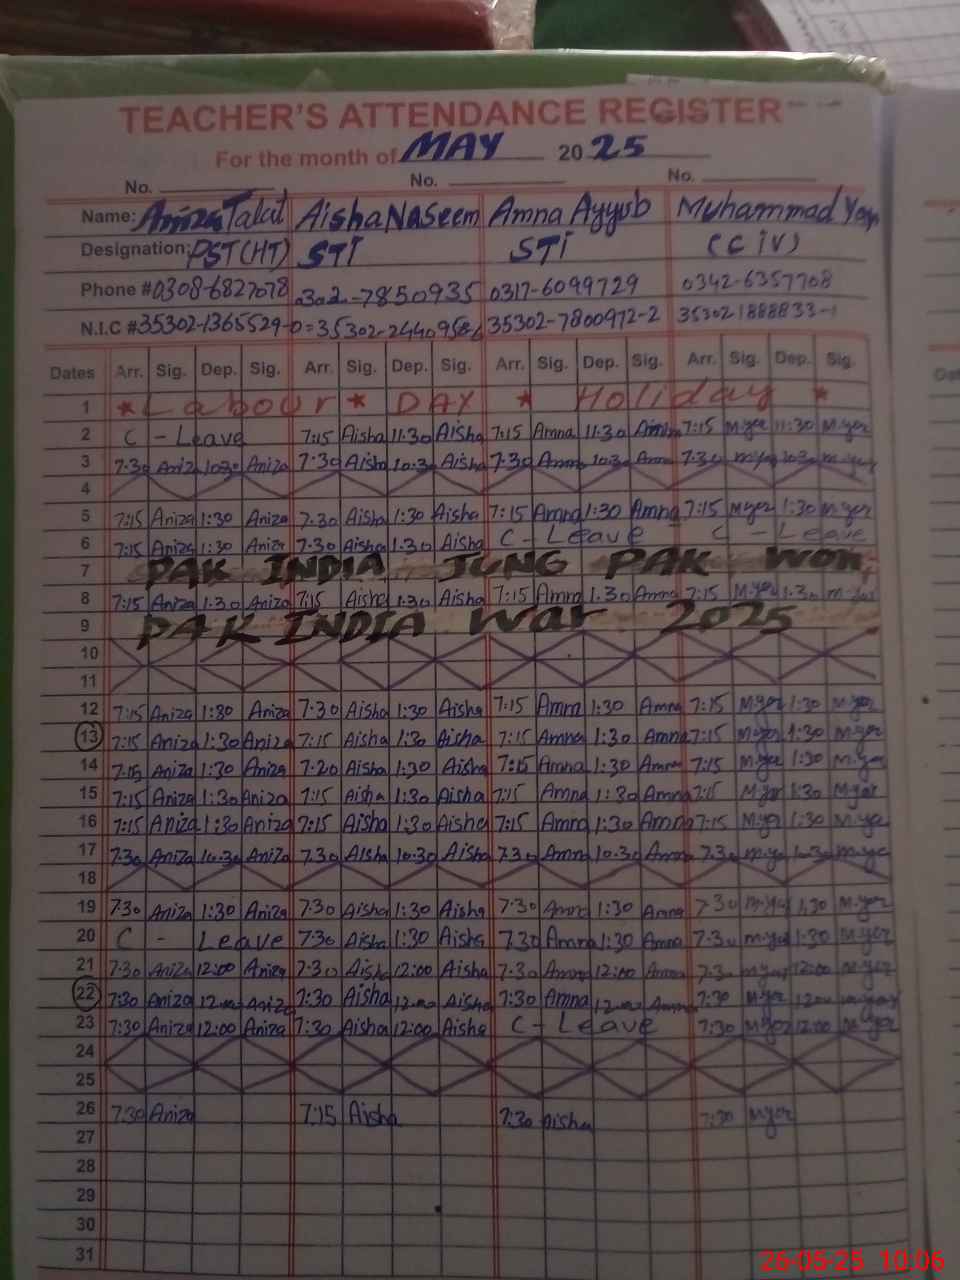 TEACHER'S ATTENDANCE REGISTER
For the month of MAY 2025
No. No. No.
Name: Aniza Talat Aisha Naseem Amna Ayyub Muhammad
Designation: PST(HT) STI STI (C iV)
Phone # 0308-6827078 0302-7850935 0317-6099729 0342-6357708
N.I.C # 35302-1365529-0 35302-7800972-2 353021888833-1
Dates Arr. Sig. Dep. Sig. Arr. Sig. Dep. Sig. Arr. Sig. Dep. Sig. Arr. Sig. Dep. Sig.
1 Labour DAY Holiday
2 C - Leave 7:15 Aisha 11:30 Aisha 7:15 Amna 11:30 Amna 7:15 M.yer 11:30 M.yer
3 7:30 Aniza 10:30 Aniza 7:30 Aisha 10:30 Aisha 7:30 Amna 10:30 Amna 7:30
4
5 7:15 Aniza 1:30 Aniza 7:30 Aisha 1:30 Aisha 7:15 Amna 1:30 Amna 7:15 M.yer 1:30 M.yer
6 7:15 Aniza 1:30 Aniza 7:30 Aisha 1:30 Aisha C - Leave C - Leave
7 PAK INDIA JUNG PAK Won
8 7:15 Aniza 1:30 Aniza 7:15 Aisha 1:30 Aisha 7:15 Amna 1:30 Amna 7:15 M.yer 1:30 M.yer
9 PAK INDIA War 2025
10
11
12 7:15 Aniza 1:30 Aniza 7:30 Aisha 1:30 Aisha 7:15 Amna 1:30 Amna 7:15 M.yer 1:30 M.yer
13 7:15 Aniza 1:30 Aniza 7:15 Aisha 1:30 Aisha 7:15 Amna 1:30 Amna 7:15 M.yer 1:30 M.yer
14 7:15 Aniza 1:30 Aniza 7:20 Aisha 1:30 Aisha 7:15 Amna 1:30 Amna 7:15 M.yer 1:30 M.yer
15 7:15 Aniza 1:30 Aniza 7:15 Aisha 1:30 Aisha 7:15 Amna 1:30 Amna 7:15 M.yer 1:30 M.yer
16 7:15 Aniza 1:30 Aniza 7:15 Aisha 1:30 Aisha 7:15 Amna 1:30 Amna 7:15 M.yer 1:30 M.ye
17 7:30 Aniza 10:30 Aniza 7:30 Aisha 10:30 Aisha 7:30 Amna 10:30 Amna 7:30 M.ye M.ye
18
19 7:30 Aniza 1:30 Aniza 7:30 Aisha 1:30 Aisha 7:30 Amna 1:30 Amna 7:30 M.yer 1:30 M.yer
20 C - Leave 7:30 Aisha 1:30 Aisha 7:30 Amna 1:30 Amna 7:30 M.yer 1:30 M.yer
21 7:30 Aniza 12:00 Aniza 7:30 Aisha 12:00 Aisha 7:30 Amna 12:00 Amna 7:30 M.yer 12:00 M.yer
22 7:30 Aniza 12:00 Aniza 7:30 Aisha 12:00 Aisha 7:30 Amna 12:00 Amna 7:30 M.yer 12:00
23 7:30 Aniza 12:00 Aniza 7:30 Aisha 12:00 Aisha C - Leave 7:30 M.yer 12:00 M.yer
24
25
26 7:30 Aniza 7:15 Aisha 7:30 Aisha 7:30 M.yer
27
28
29
30
31
26-05-25 10:06